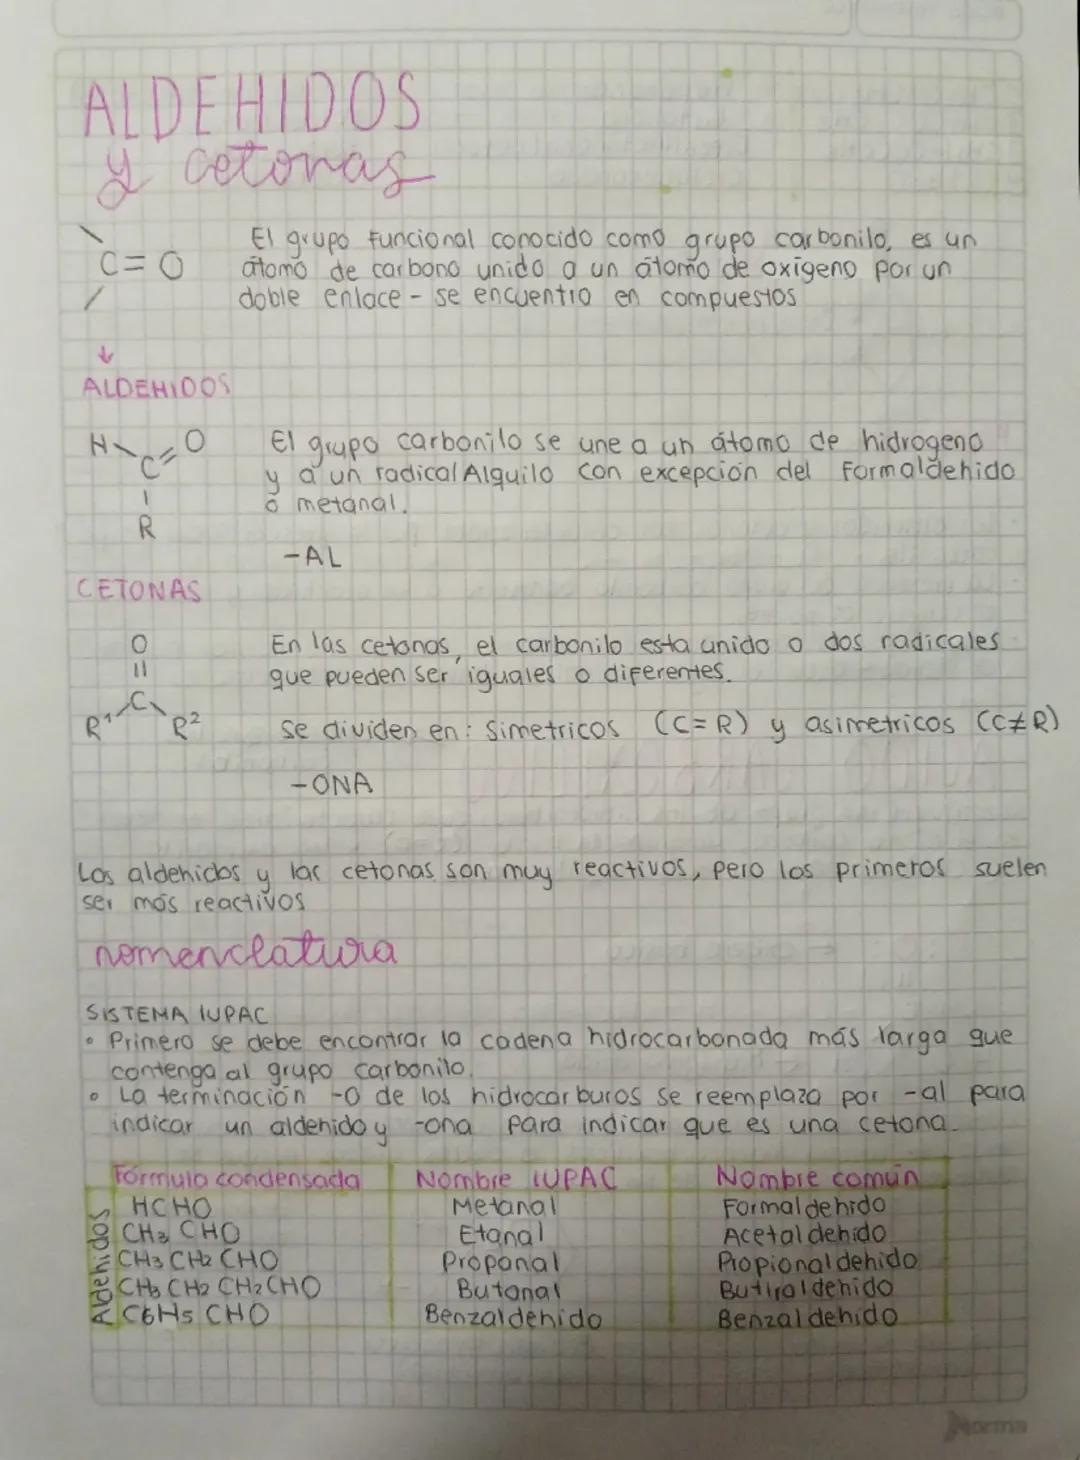 ALDEHIDOS
y cetonas
\
C=O
/
El grupo funcional conocido como grupo carbonilo, es un
átomo de carbono unido a un átomo de oxígeno por un
doble enlace - se encuentra en compuestos
↓
ALDEHIDOS
H O
C
R
El grupo carbonilo se une a un átomo de hidrogeno
y a un radical Alquilo con excepción del Formaldehido
ó metanal.
-AL
CETONAS
O
||
C
R¹ R²
En las cetonas, el carbonilo esta unido a dos radicales
que pueden ser iguales o diferentes.
se dividen en: Simetricos (C=R) y asimetricos (C≠R)
-ONA
Los aldehidos y las cetonas son muy reactivos, pero los primeros suelen
ser más reactivos
nomenclatura
SISTEMA IUPAC
• Primero se debe encontrar la cadena hidrocarbonada más larga que
contenga al grupo carbonilo.
• La terminación -O de los hidrocarburos se reemplaza por -al para
indicar un aldehido y -ona para indicar que es una cetona.
Fórmula condensada Nombre IUPAC Nombre común
Aldehidos
HCHO Metanal Formaldehido
CH3 CHO Etanal Acetaldehido
CH3 CH2 CHO Propanal Propionaldehido
CH3 CH2 CH2 CHO Butanal Butiraldehido
C6H5 CHO Benzaldehido Benzaldehido
Norma